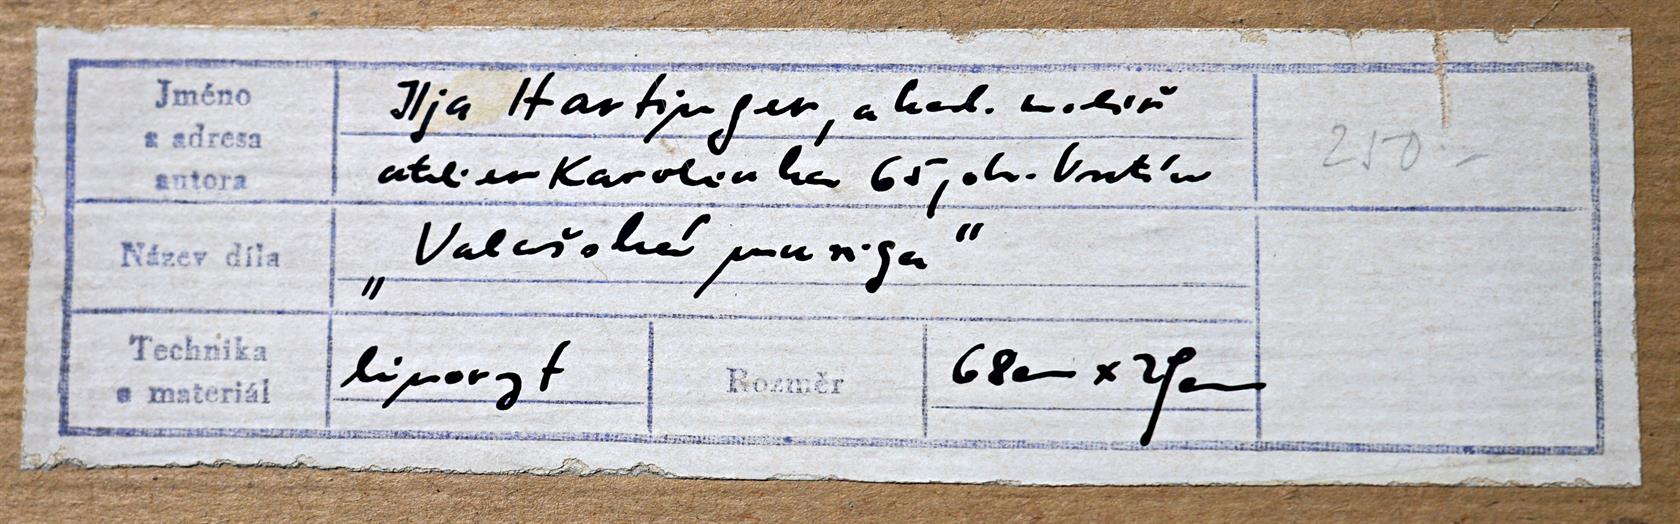 Jméno
a adresa
autora
Ilja Hartinger, akad. malíř
atelier Karolinka 65, okr. Vsetín
250.-
Název díla
„Valašská
Technika
a materiál
Rozměr
68cm x